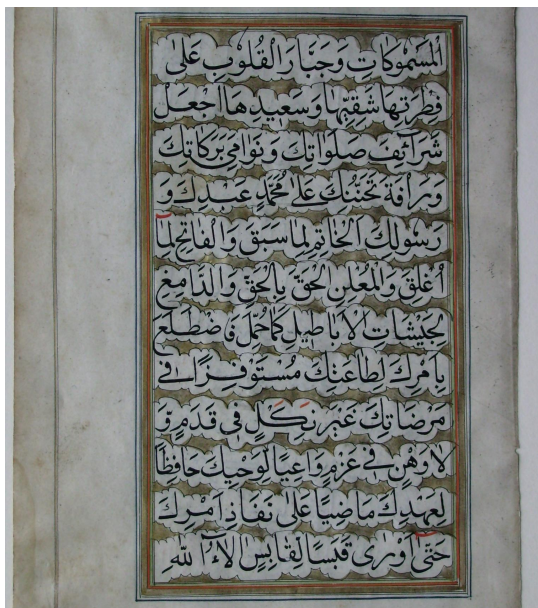 الْمَسْمُوكَاتِ وَجَبَّارَ الْقُلُوبِ عَلٰى
فِطْرَتِهَا شَقِيِّهَا وَسَعِيدِهَا اجْعَلْ
شَرَآئِفَ صَلَوَاتِكَ وَنَوَامِىَ بَرَكَاتِكَ
وَرَافَةَ تَحَنُّنِكَ عَلٰى مُحَمَّدٍ عَبْدِكَ وَ
رَسُولِكَ الْخَاتِمِ لِمَا سَبَقَ وَالْفَاتِحِ لِمَا
اُغْلِقَ وَالْمُعْلِنِ الْحَقَّ بِالْحَقِّ وَالدَّامِغِ
لِجَيْشَاتِ الْاَبَاطِيلِ كَمَا حُمِّلَ فَاضْطَلَعَ
بِاَمْرِكَ لِطَاعَتِكَ مُسْتَوْفِزًا فِى
مَرْضَاتِكَ غَيْرَ نَكِلٍ فِى قَدَمٍ وَ
لَا وَهْنٍ فِى عَزْمٍ وَاعِيًا لِوَحْيِكَ حَافِظًا
لِعَهْدِكَ مَاضِيًا عَلٰى نَفَاذِ اَمْرِكَ
حَتّٰى اَوْرٰى قَبَسًا لِقَابِسٍ اٰلَاۤءُ اللّٰهِ